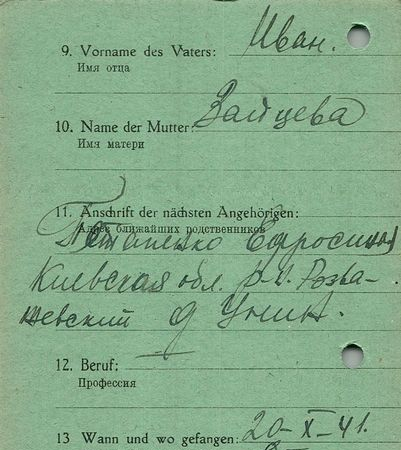 9. Vorname des Vaters: Иван.
Имя отца
10. Name der Mutter: Зайцева
Имя матери
11. Anschrift der nächsten Angehörigen:
Адрес ближайших родственников
Потапенко
Киевская обл. р-н. Розва-
жевский д
12. Beruf:
Профессия
13 Wann und wo gefangen: 20-X-41.